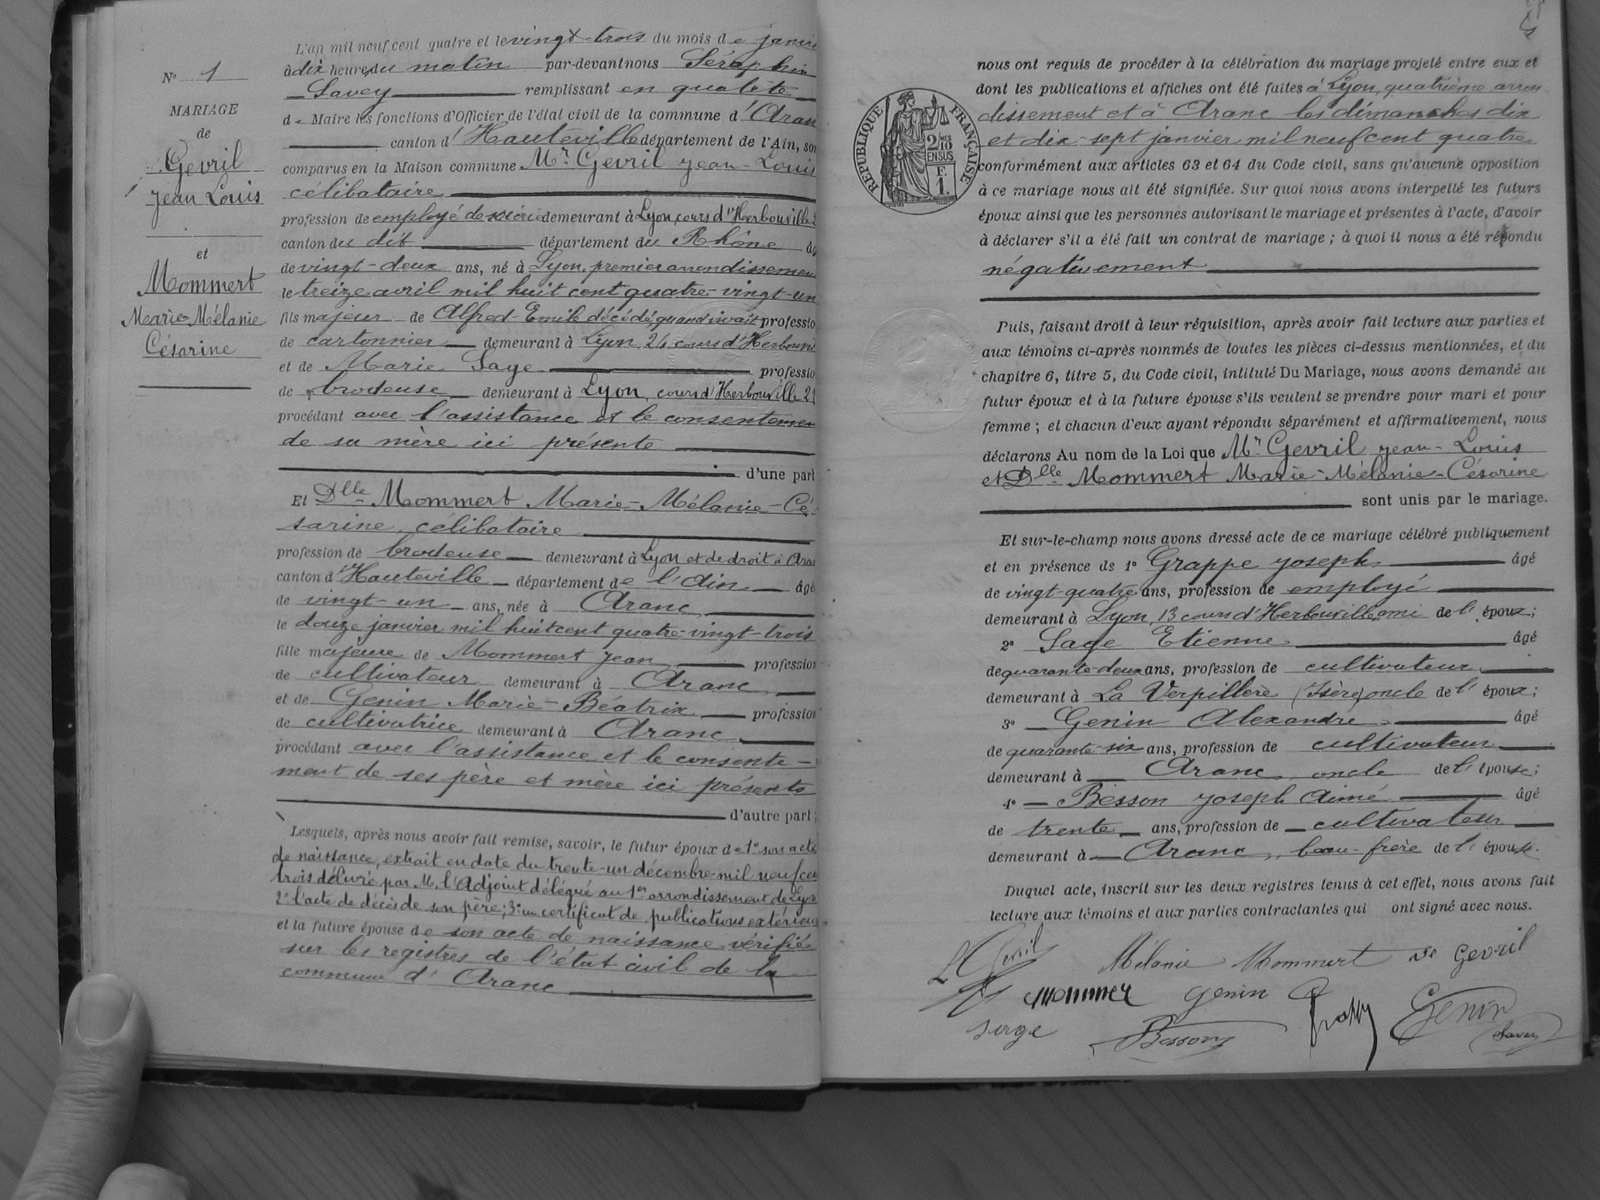 N° 1
MARIAGE
de
Gevril
Jean Louis
et
Mommert
Marie Mélanie
Césarine
L'an mil neuf cent quatre et le vingt-trois du mois de janvi
à dix heures du matin par-devant nous Séraphin
Savey remplissant en qualité
de Maire les fonctions d'Officier de l'état civil de la commune d'Aran
canton d'Hauteville département de l'Ain, so
comparus en la Maison commune Mr Gevril jean-Louis
célibataire
profession de employé de demeurant à Lyon, cours d'Herbouville 2
canton du dit département du Rhône
de vingt-deux ans, né à Lyon, premier arrondissemen
le treize avril mil huit cent quatre-vingt-un
fils majeur de Alfred Emile décédé quand vivait professio
de cartonnier demeurant à Lyon, 24 cours d'Herbouvi
et de Marie Sage professio
de brodeuse demeurant à Lyon, cours d'Herbouville 24
procédant avec l'assistance et le consentemen
de sa mère ici présente
d'une part
Et Dlle Mommert Marie-Mélanie-Cé-
sarine, célibataire
profession de brodeuse demeurant à Lyon et de droit à Aran
canton d'Hauteville département de l'Ain âgé
de vingt-un ans, née à Aranc
le douze janvier mil huit cent quatre-vingt-trois
fille majeure de Mommert jean profession
de cultivateur demeurant à Aranc
et de Genin Marie-Béatrix profession
de cultivatrice demeurant à Aranc
procédant avec l'assistance et le consente-
ment de ses père et mère ici présents
d'autre part;
Lesquels, après nous avoir fait remise, savoir, le futur époux de 1° son acte
de naissance, extrait en date du trente-un décembre mil neuf cen
trois délivré par M. l'Adjoint délégué au 1er arrondissement de Lyon
2° l'acte de décès de son père; 3° un certificat de publications extérieu
et la future épouse de son acte de naissance vérifié
sur les registres de l'état civil de la
commune d'Aranc
nous ont requis de procéder à la célébration du mariage projeté entre eux et
dont les publications et affiches ont été faites à Lyon, quatrième arron
dissement et à Aranc les dimanches dix
et dix-sept janvier mil neuf cent quatre
conformément aux articles 63 et 64 du Code civil, sans qu'aucune opposition
à ce mariage nous ait été signifiée. Sur quoi nous avons interpellé les futurs
époux ainsi que les personnes autorisant le mariage et présentes à l'acte, d'avoir
à déclarer s'il a été fait un contrat de mariage; à quoi il nous a été répondu
négativement
RÉPUBLIQUE FRANÇAISE
2/10
EN SUS
F
1.
Puis, faisant droit à leur réquisition, après avoir fait lecture aux parties et
aux témoins ci-après nommés de toutes les pièces ci-dessus mentionnées, et du
chapitre 6, titre 5, du Code civil, intitulé Du Mariage, nous avons demandé au
futur époux et à la future épouse s'ils veulent se prendre pour mari et pour
femme; et chacun d'eux ayant répondu séparément et affirmativement, nous
déclarons Au nom de la Loi que Mr Gevril jean-Louis
et Dlle Mommert Marie-Mélanie-Césarine
sont unis par le mariage.
Et sur-le-champ nous avons dressé acte de ce mariage célébré publiquement
et en présence de 1° Grappe joseph âgé
de vingt-quatre ans, profession de employé
demeurant à Lyon, 13 cours d'Herbouville, ami de l'époux;
2° Sage Etienne âgé
de quarante-deux ans, profession de cultivateur
demeurant à La Verpillere (Isère) oncle de l'époux;
3° Genin Alexandre âgé
de quarante-six ans, profession de cultivateur
demeurant à Aranc, oncle de l'épouse;
4° Besson joseph Aimé âgé
de trente ans, profession de cultivateur
demeurant à Aranc, beau-frère de l'épouse.
Duquel acte, inscrit sur les deux registres tenus à cet effet, nous avons fait
lecture aux témoins et aux parties contractantes qui ont signé avec nous.
Gevril Mélanie Mommert Ve Gevril
Mommer Genin Genin
Besson Savey